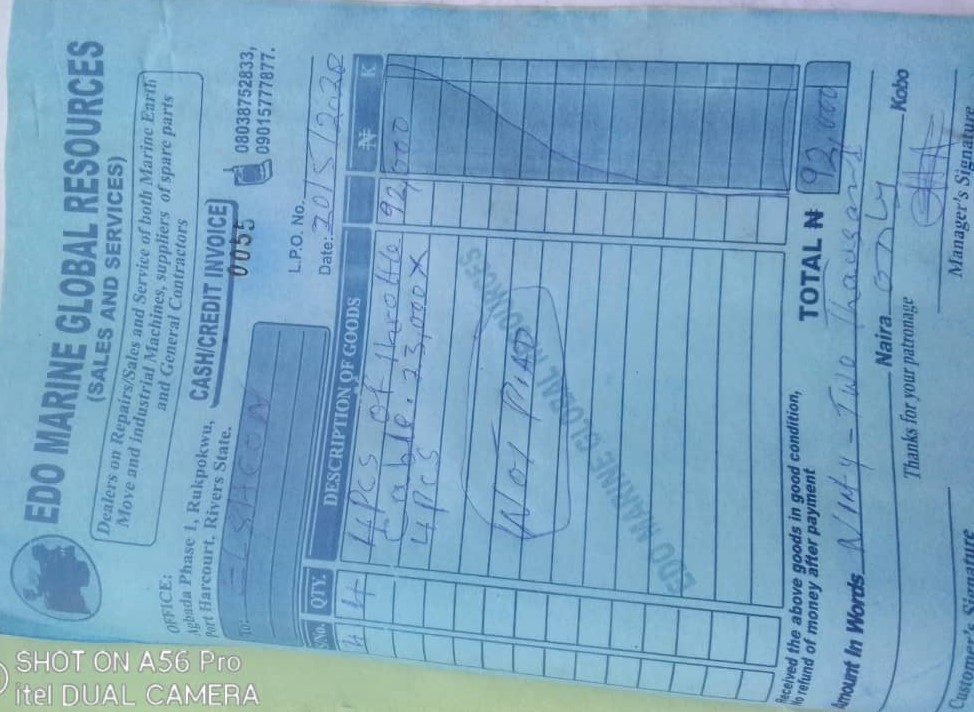 EDO MARINE GLOBAL RESOURCES
(SALES AND SERVICES)
Dealers on Repairs/Sales and Service of both Marine Earth
Move and industrial Machines, suppliers of spare parts
and General Contractors
OFFICE:
Agbada Phase 1, Rukpokwu,
Port Harcourt, Rivers State.
CASH/CREDIT INVOICE
0055
08038752833,
09015777877.
To:
L.P.O. No.
Date: 20/5/2020
S/No. QTY. DESCRIPTION OF GOODS ₦ K
4 4 4 Pcs of throttle 92,000
Cable. 23,000 X
4 Pcs
NOT PIAD
EDO MARINE GLOBAL RESOURCES
Received the above goods in good condition,
No refund of money after payment
TOTAL ₦ 92,000
Amount In Words Ninty-Two Thausand
Naira only Kobo
Thanks for your patronage
Customer's Signature Manager's Signature
SHOT ON A56 Pro
itel DUAL CAMERA